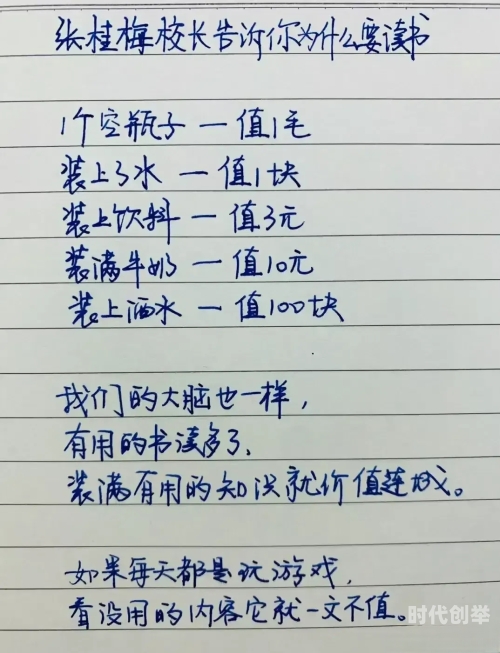 张桂梅校长告诉你为什么要读书
1个空瓶子一值1毛
装上了水一值1块
装上饮料一值3元
装满牛奶一值10元
装上酒水一值100块
我们的大脑也一样，
有用的书读多了，
装满有用的知识就价值连城。
如果每天都是玩游戏，
看没用的内容它就一文不值。
时代创举